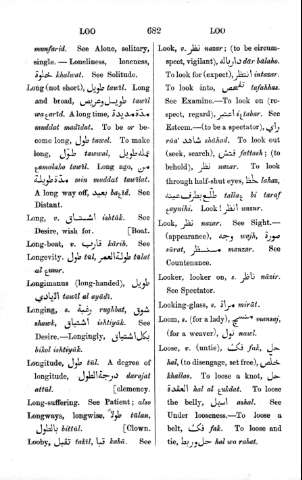 LOO 682 LOO
munfarid. See Alone, solitary,
single. — Loneliness, loneness,
خلوة khalwat. See Solitude.
Long (not short), طويل tawîl. Long
and broad, طويل وعريض tawîl
wa earîd. A long time, مدة مديدة
muddat madîdat. To be or be-
come long, طول tawel. To make
long, طول tawwal,
Long ago, من
مدة طويلة min muddat tawîlat.
A long way off, بعيد baeîd. See
Distant.
Long, v. اشتياق ishtiâk. See
Desire, wish for. [Boat.
Long-boat, s. قارب kârib. See
Longevity, طول tûl, طولة العمر tûlat
al eumr.
Longimanus (long-handed), طويل
الايادي tawîl al ayâdî.
Longing, s. رغبة rughbat, شوق
shawk, اشتياق ishtiâk. See
Desire.—Longingly, بكل اشتياق
bikol ishtiyâk.
Longitude, طول tûl. A degree of
longitude, درجة الطول darajat
attûl. [clemency.
Long-suffering. See Patient; also
Longways, longwise, طولا tûlan,
بالطول bittûl. [Clown.
Looby, ثقيل takîl, قبا kabâ. See
Look, v. نظر nazar; (to be circum-
spect, vigilant), دار باله dâr bâlaho.
To look for (expect), انتظر intazar.
To look into, تفحص tafahhas.
See Examine.—To look on (re-
spect, regard), اعتبر eetabar. See
Esteem.—(to be a spectator), رأي
râa' شاهد shâhad. To look out
(seek, search), فتش fattash; (to
behold), نظر nazar. To look
through half-shut eyes, لحظ lahaz,
طلع بطرف عينه tallae bi taraf
eaynihi. Look! أنظر nzur.
Look, نظر nazar. See Sight.—
(appearance), وجه wajh, صورة
sûrat, منظر manzar. See
Countenance.
Looker, looker on, s. ناظر nâzir.
See Spectator.
Looking-glass, s. مراة mirât.
Loom, s. (for a lady), منسج mansaj,
(for a weaver), نول nawl.
Loose, v. (untie), فك fak, حل
hal, (to disengage, set free), خلص
khallas. To loose a knot, حل
العقدة hal al eukdat. To loose
the belly, اسهل ashal. See
Under looseness.—To loose a
belt, فك fak. To loose and
tie, حل وربط hal wa rabat.